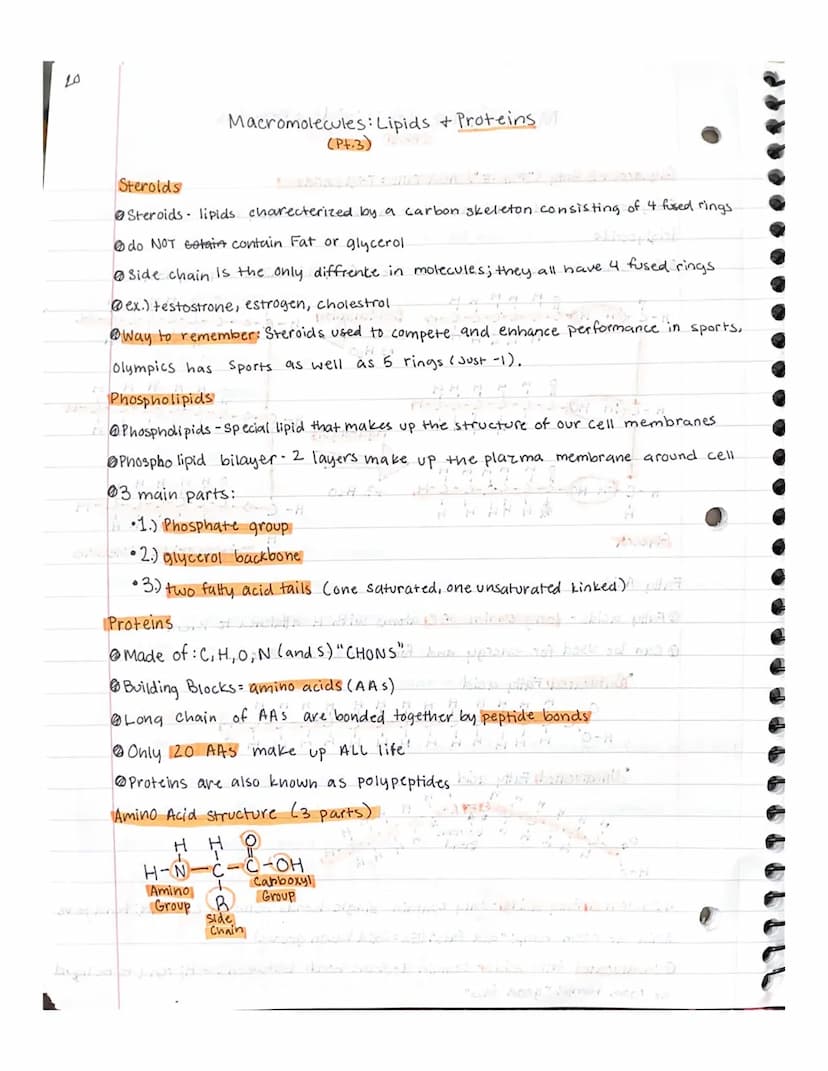 20
Macromolecules: Lipids + Proteins
(Pt.3)
Steroids
Steroids - lipids charecterized by a carbon skeleton consisting of 4 fused rings
do NOT cotain contain Fat or glycerol
Side chain is the only diffrence in molecules; they all have 4 fused rings
ex.) testostrone, estrogen, cholestrol
Way to remember: Steroids used to compete and enhance performance in sports,
Olympics has Sports as well as 5 rings (Just -1).
Phospholipids
Phospholipids - Special lipid that makes up the structure of our cell membranes
Phospho lipid bilayer - 2 layers make up the plazma membrane around cell
3 main parts:
•1.) Phosphate group
•2.) glycerol backbone
•3.) two fatty acid tails (one saturated, one unsaturated kinked)
Proteins
Made of: C, H, O, N (and S) "CHONS"
Building Blocks = amino acids (AAs)
Long chain of AAs are bonded together by peptide bonds
Only 20 AAs make up ALL life
Proteins are also known as polypeptides
Amino Acid structure (3 parts)
H H O
H-N-C-C-OH
Amino Carboxyl
Group R Group
Side
Chain